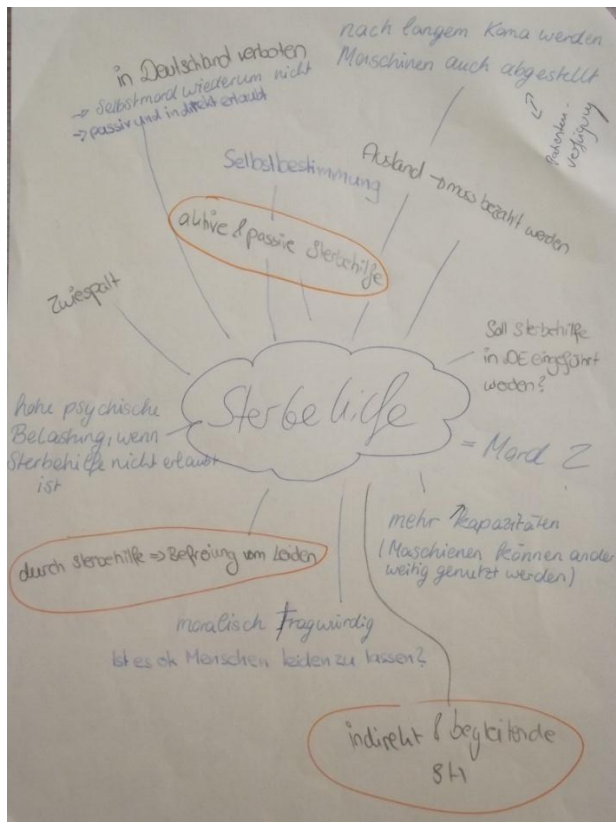 nach langem Koma werden
Maschinen auch abgestellt
Patienten-
verfügung
in Deutschland verboten
→ Selbstmord wiederum nicht
→ passiv und indirekt erlaubt
Selbstbestimmung
Ausland → muss bezahlt werden
aktive & passive Sterbehilfe
Zwiespalt
Soll Sterbehilfe
in DE eingeführt
werden?
Sterbehilfe
hohe psychische
Belastung, wenn
Sterbehilfe nicht erlaubt
ist
= Mord ?
mehr Kapazitäten
(Maschienen können ander
weitig genutzt werden)
durch Sterbehilfe => Befreiung vom Leiden
moralisch Fragwürdig
Ist es ok Menschen leiden zu lassen?
indirekt & begleitende
SH